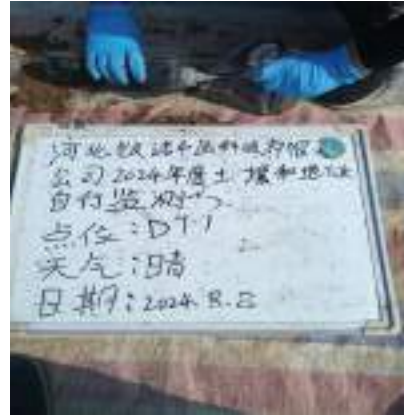 河北
公司2024年度土壤和地下水
自行监测
点位:DT1
天气:晴
日期:2024.8.8